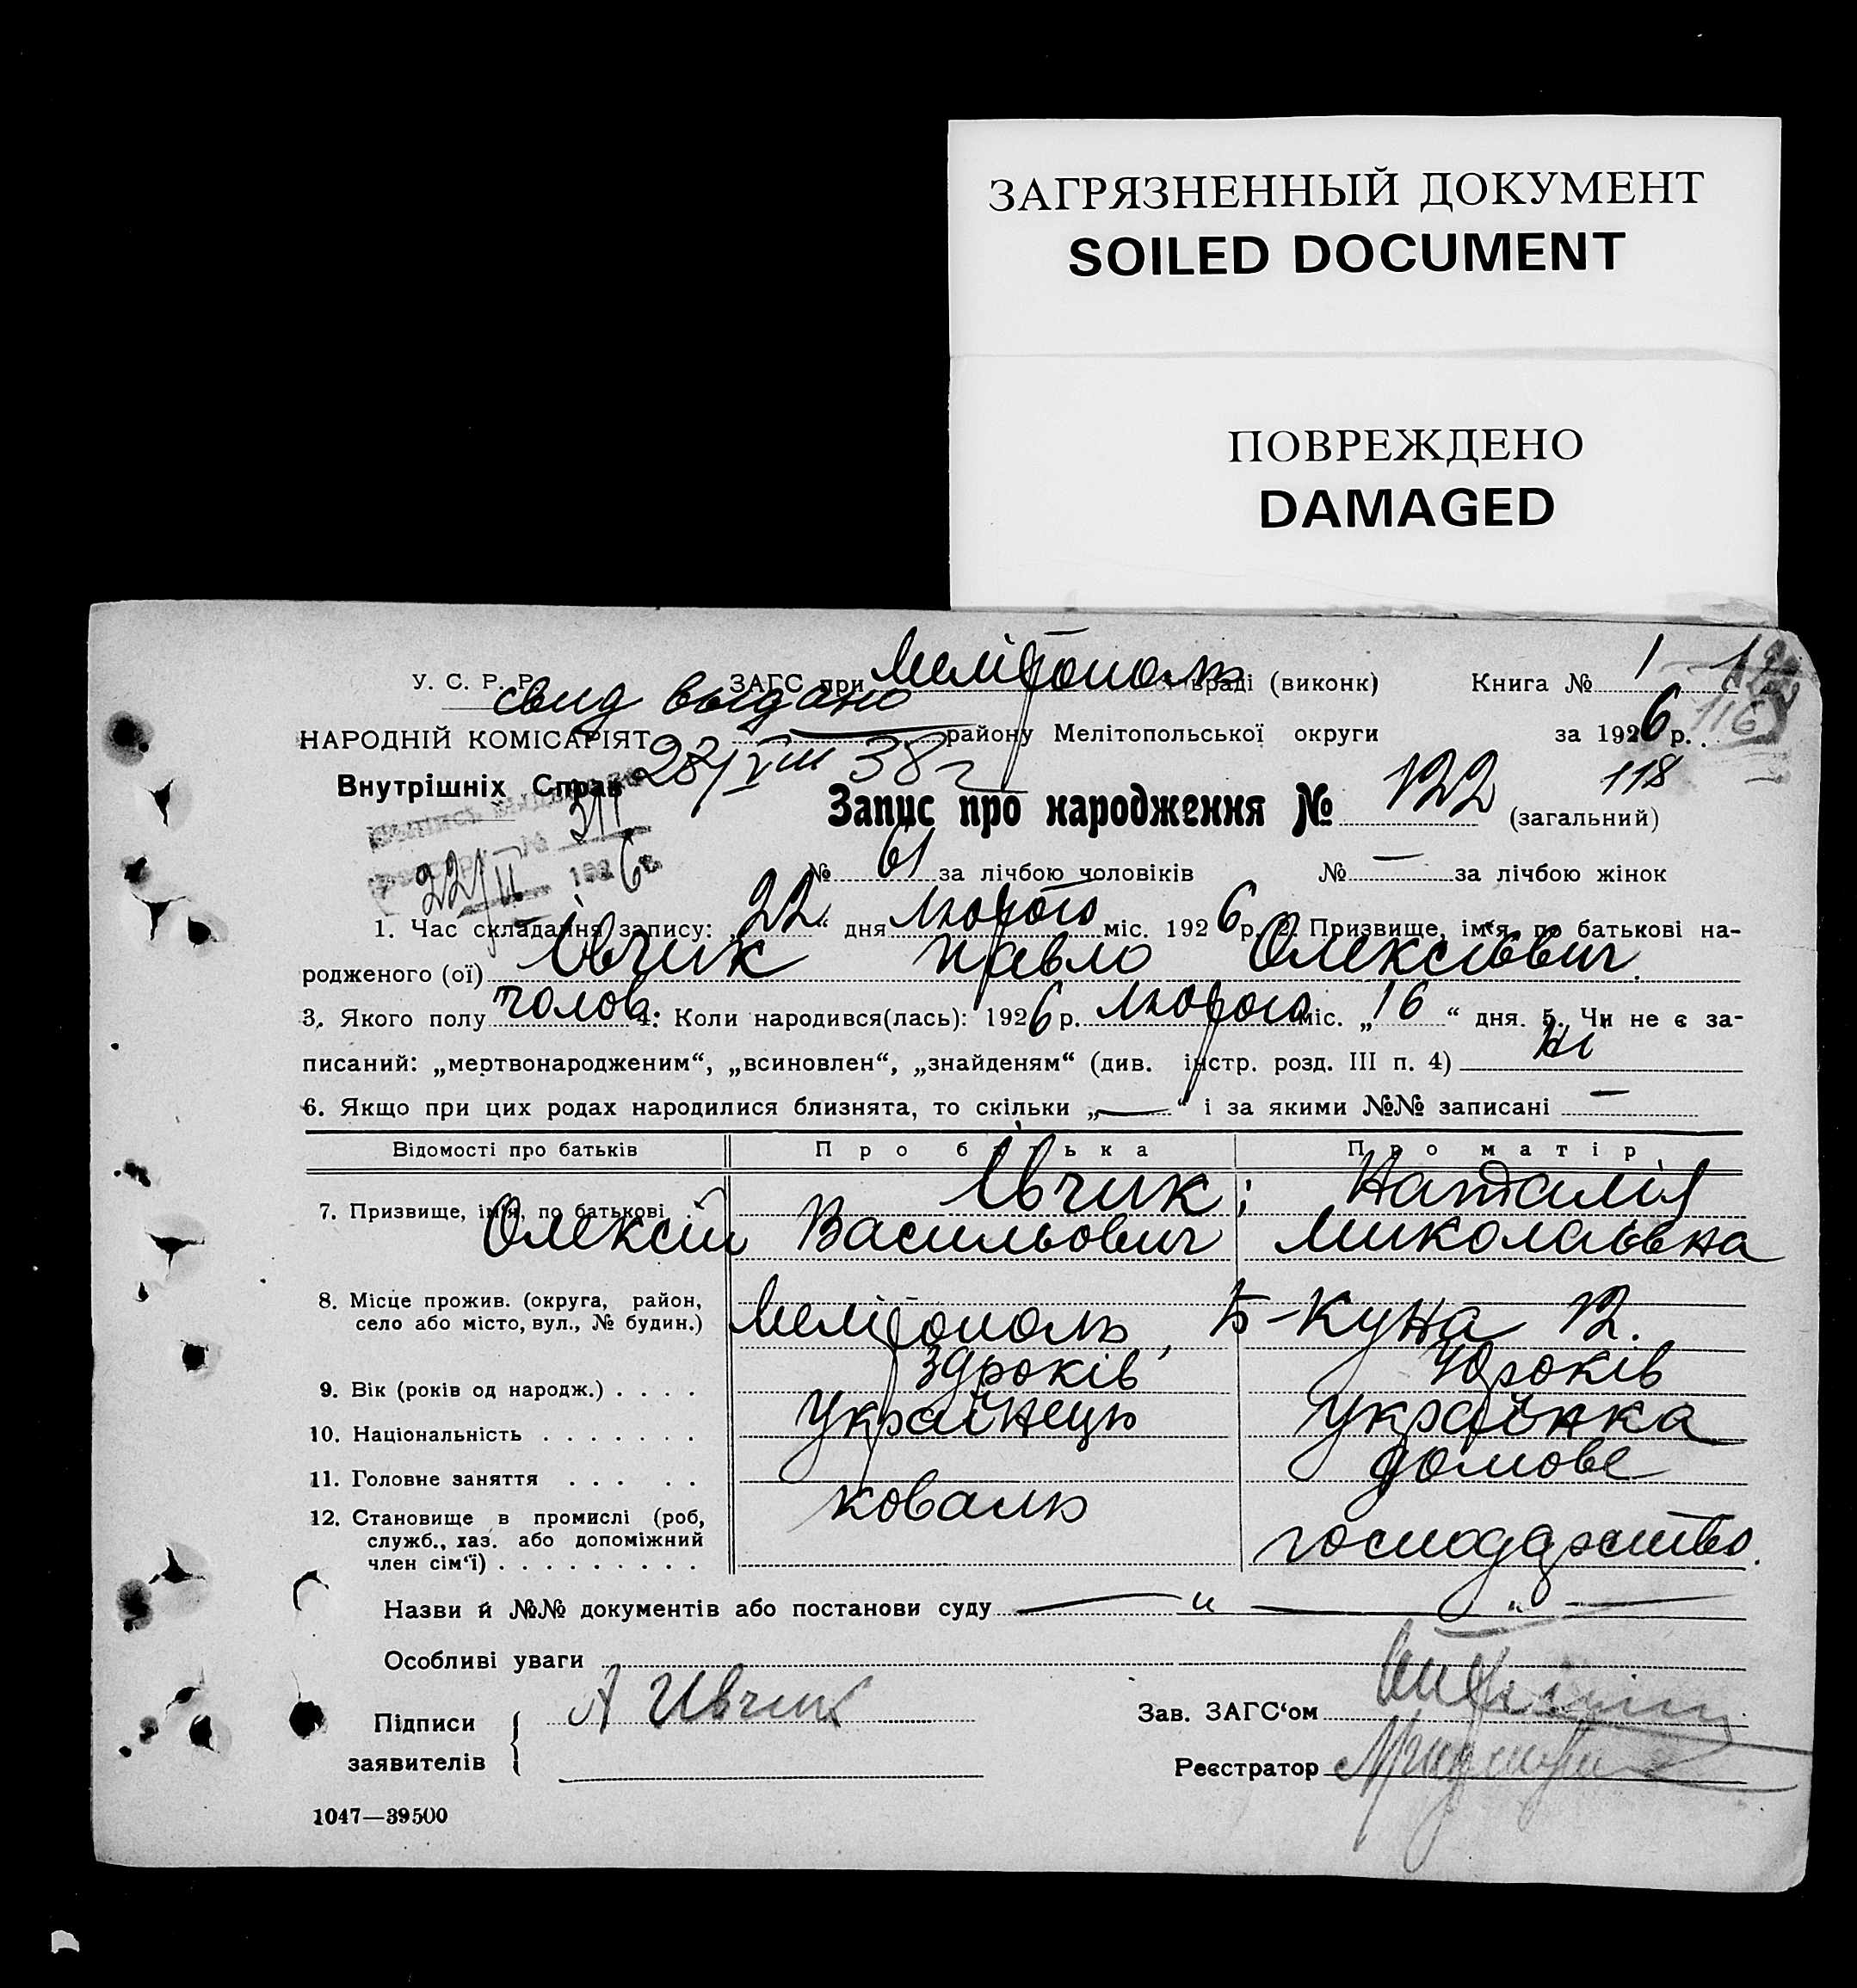 ЗАГРЯЗНЕННЫЙ ДОКУМЕНТ
SOILED DOCUMENT
ПОВРЕЖДЕНО
DAMAGED
У. С. Р. Р. ЗАГС при Мелітополь враді (виконк) Книга № 1
свид выдано 116
НАРОДНІЙ КОМІСАРІЯТ району Мелітопольської округи за 1926 р.
28/VIII 38 г
Внутрішніх Справ
Запис про народження № 122 (загальний) 118
311
22/II 1926 г.
№ 61 за лічбою чоловіків № — за лічбою жінок
1. Час складання запису: „22“ дня Лютого міс. 1926 р. 2. Призвище, ім'я, по батькові на-
родженого (ої) Івчик Павло Олексієвич.
3. Якого полу чолов. 4. Коли народився(лась): 1926 р. Лютого міс. „16“ дня. 5. Чи не є за-
писаний: „мертвонародженим“, „всиновлен“, „знайденям“ (див. інстр. розд. III п. 4) Ні
6. Якщо при цих родах народилися близнята, то скільки „—“ і за якими №№ записані —
Відомості про батьків Про батька Про матір
7. Призвище, ім'я, по батькові Івчик; Наталія
Олексій Васильович Миколаєвна
8. Місце прожив. (округа, район,
село або місто, вул., № будин.) Мелітополь, Б-Куна 12.
9. Вік (років од народж.) . . . . 39 років 40 років
10. Національність . . . . . . . Українець Українка
11. Головне заняття . . . . . домове
коваль
12. Становище в промислі (роб,
служб., хаз. або допоміжний господарство.
член сім'ї) . . . . . . . . .
Назви й №№ документів або постанови суду — „ — „ —
Особливі уваги
Підписи
заявителів А Ивчик
Зав. ЗАГС'ом
Реєстратор
1047—39500